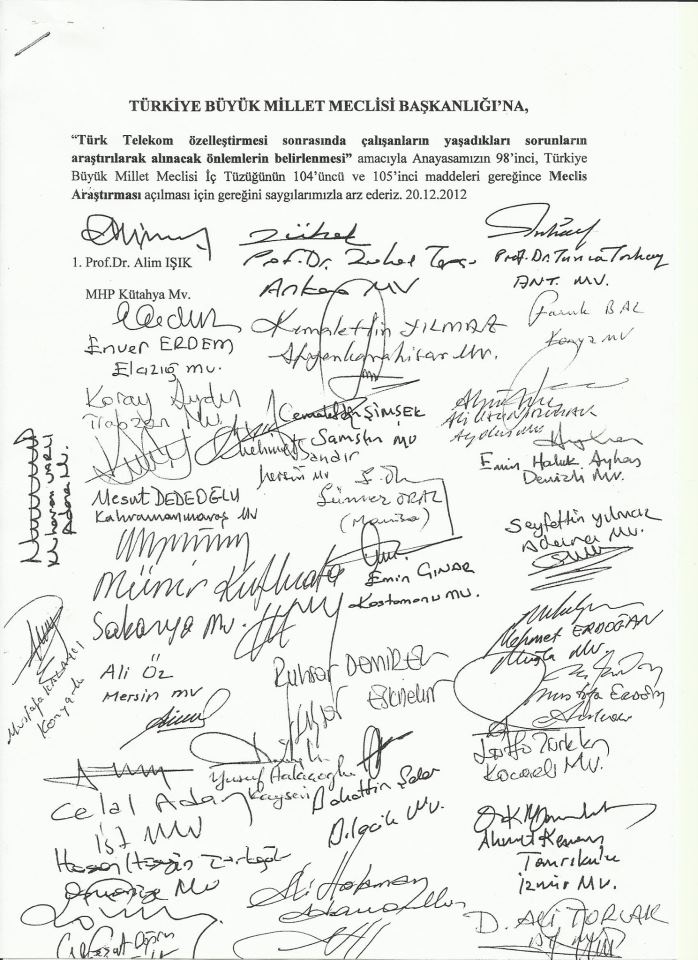 TÜRKİYE BÜYÜK MİLLET MECLİSİ BAŞKANLIĞI'NA,
"Türk Telekom özelleştirmesi sonrasında çalışanların yaşadıkları sorunların
araştırılarak alınacak önlemlerin belirlenmesi" amacıyla Anayasamızın 98'inci, Türkiye
Büyük Millet Meclisi İç Tüzüğünün 104'üncü ve 105'inci maddeleri gereğince Meclis
Araştırması açılması için gereğini saygılarımızla arz ederiz. 20.12.2012
1. Prof.Dr. Alim IŞIK
Prof. Dr. Zuhal
Prof. Dr. Tunca Toskay
MHP Kütahya Mv.
Ankara MV
ANT. MV.
Enver ERDEM
Elazığ mv.
Kemalettin YILMAZ
Afyonkarahisar Mv.
Faruk BAL
Konya MV
Koray Aydın
Trabzon Mv.
Cemalettin ŞİMŞEK
Samsun MV
Ali UZUNIRMAK
Aydın Mv.
Adana Mv.
Mesut DEDEOĞLU
Kahramanmaraş MV
Mersin Mv
Sümer ORAL
(Manisa)
Emin Haluk Ayhan
Denizli Mv.
Seyfettin yılmaz
Adana Mv.
Münir Kutluata
Sakarya Mv.
Emin ÇINAR
Kastamonu MV.
Mehmet ERDOĞAN
Muğla Mv.
Konya
Ali ÖZ
Mersin mv
Ruhsar DEMİREL
Eskişehir
Mustafa Erdem
Lütfü Türkkan
Kocaeli MV.
Celal Adan
İst MV
Yusuf Halaçoğlu
Kayseri
Bahattin Şeker
Bilecik Mv.
Hasan Hüseyin Türkoğlu
Osmaniye Mv
Ahmet Kenan
Tanrıkulu
İzmir Mv.
Ali Halaman
D. Ali TORLAK